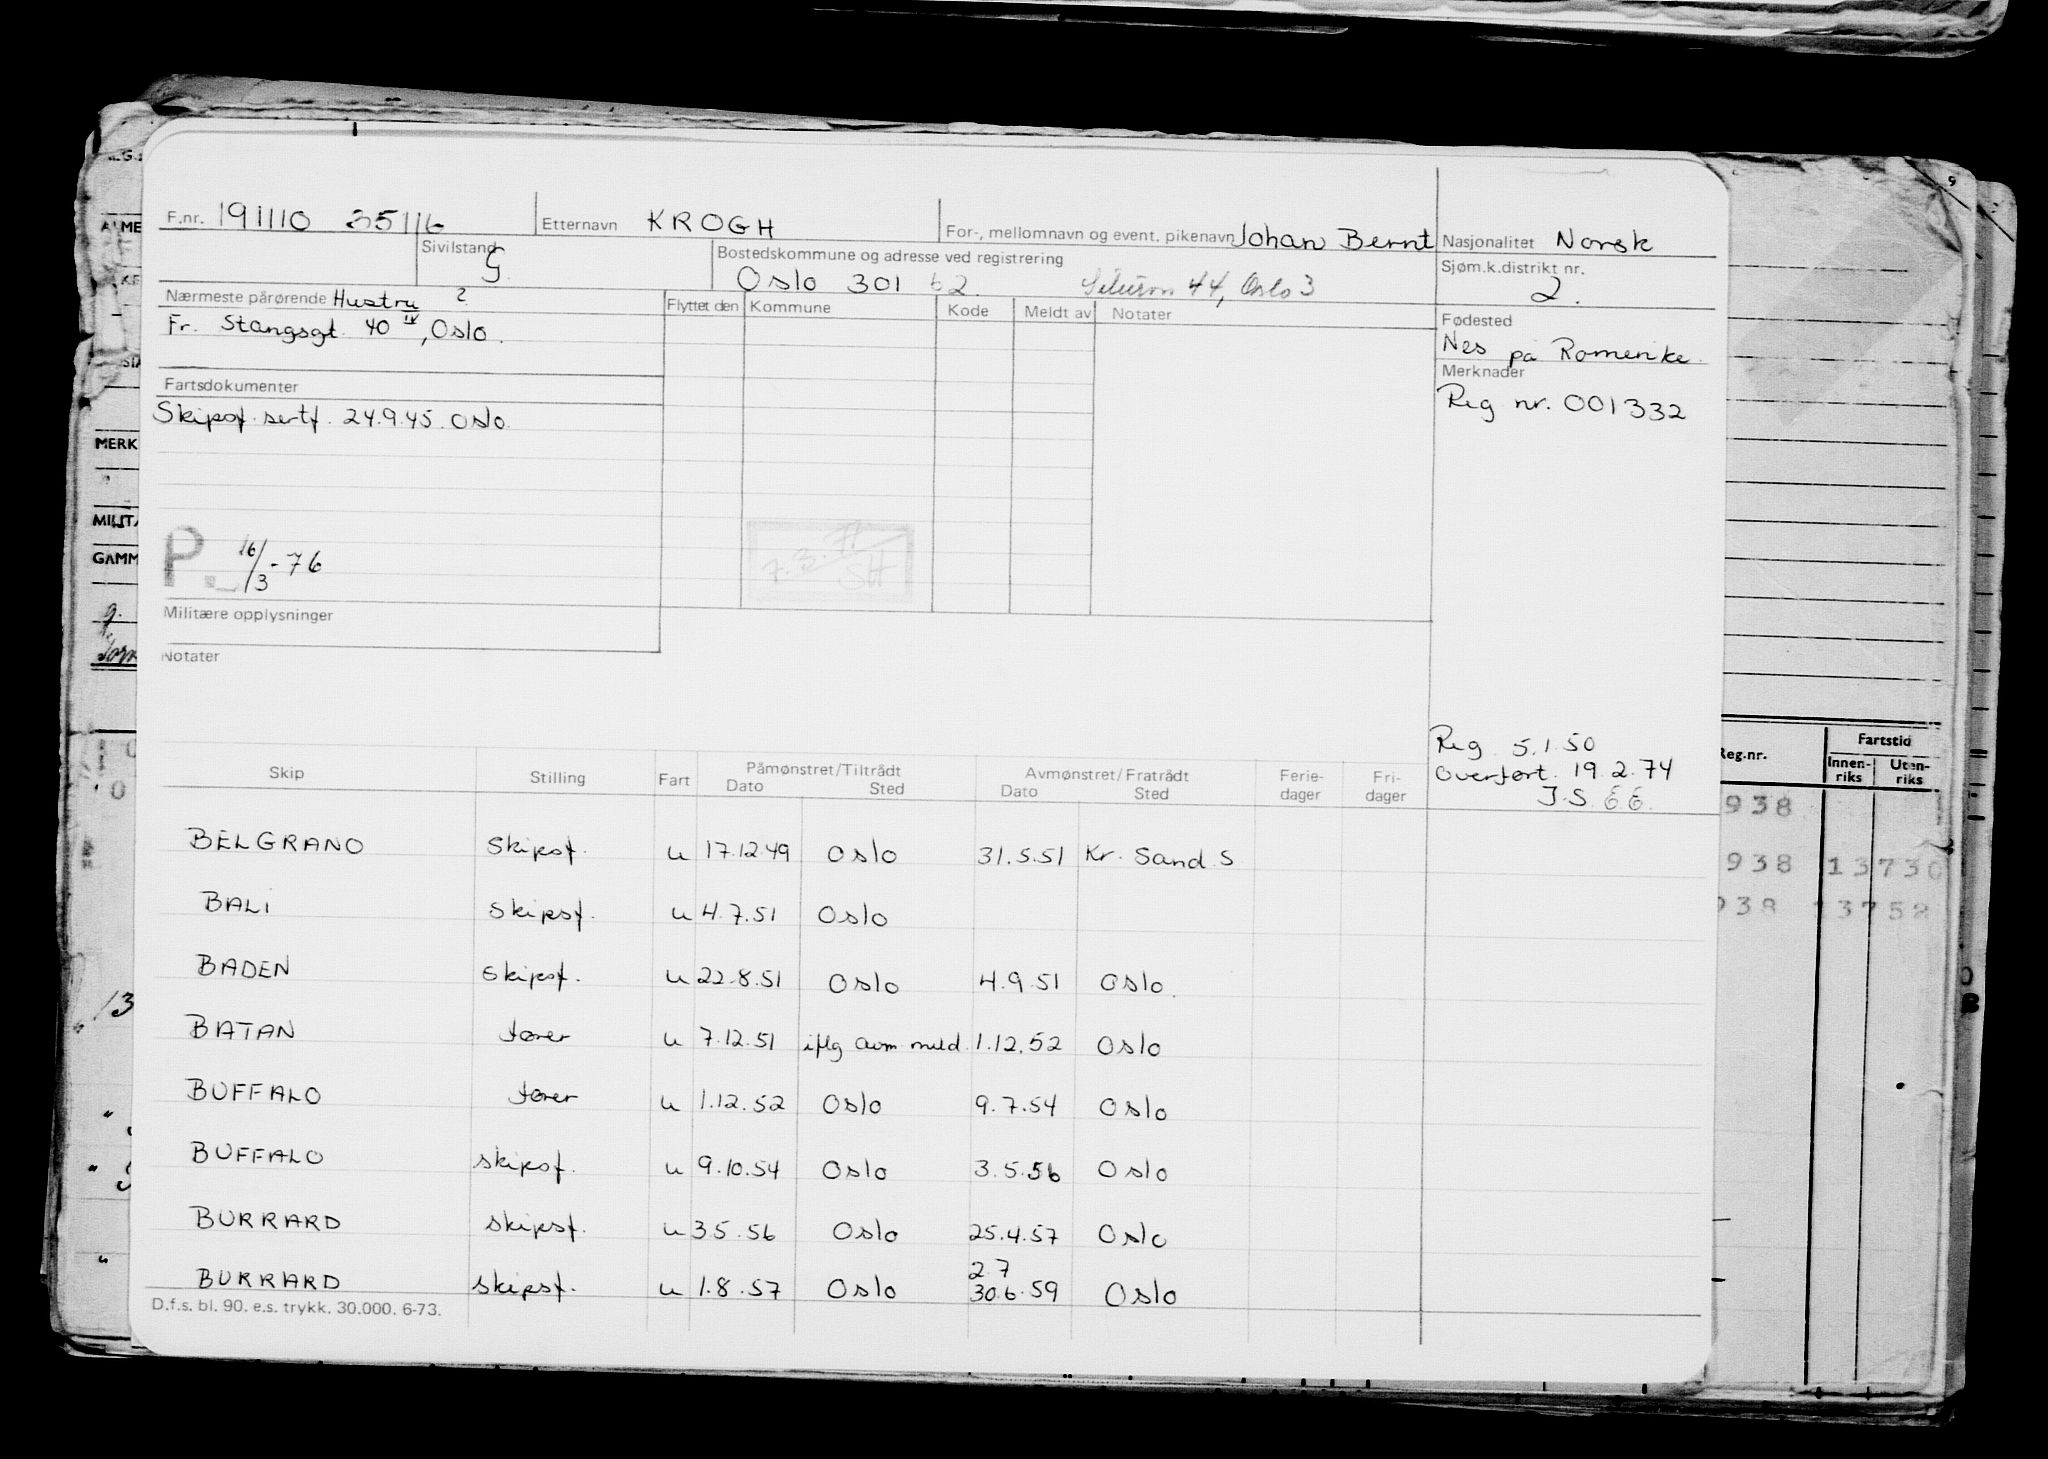 F.nr. 191110 35116 Etternavn KROGH For-, mellomnavn og event. pikenavn Johan Bernt Nasjonalitet Norsk
Sivilstand G. Bostedskommune og adresse ved registrering Sjøm.k.distrikt nr.
Oslo 301 62 44, Oslo 3 2.
Nærmeste pårørende Hustru ? Flyttet den Kommune Kode Meldt av Notater Fødested
Fr. Stangsgt. 40 IV, Oslo. Nes på Romerike.
Fartsdokumenter Merknader
Skipsf. sertf. 24.9.45. Oslo. Reg. nr. 001332
P. 16/3-76
7.3.77 SH
Militære opplysninger
Notater
Reg. 5.1.50
Overført. 19.2.74
J.S. E.E.
Skip Stilling Fart Påmønstret/Tiltrådt Avmønstret/Fratrådt Ferie- Fri-
Dato Sted Dato Sted dager dager
BELGRANO Skipsf. u 17.12.49 Oslo 31.5.51 Kr. Sand. S
BALI Skipsf. u 4.7.51 Oslo
BADEN Skipsf. u 22.8.51 Oslo 4.9.51 Oslo.
BATAN fører u 7.12.51 iflg avm meld. 1.12.52 Oslo
BUFFALO fører u 1.12.52 Oslo 9.7.54 Oslo
BUFFALO skipsf. u 9.10.54 Oslo 3.5.56 Oslo
BURRARD skipsf. u 3.5.56 Oslo 25.4.57 Oslo
2.7
BURRARD skipsf. u 1.8.57 Oslo 30.6.59 Oslo
D.f.s. bl. 90. e.s. trykk. 30.000. 6-73.
MERK
GAMM
Reg.nr. Fartstid
Innen- Uten-
riks riks
938
938 13730
938 13752
9